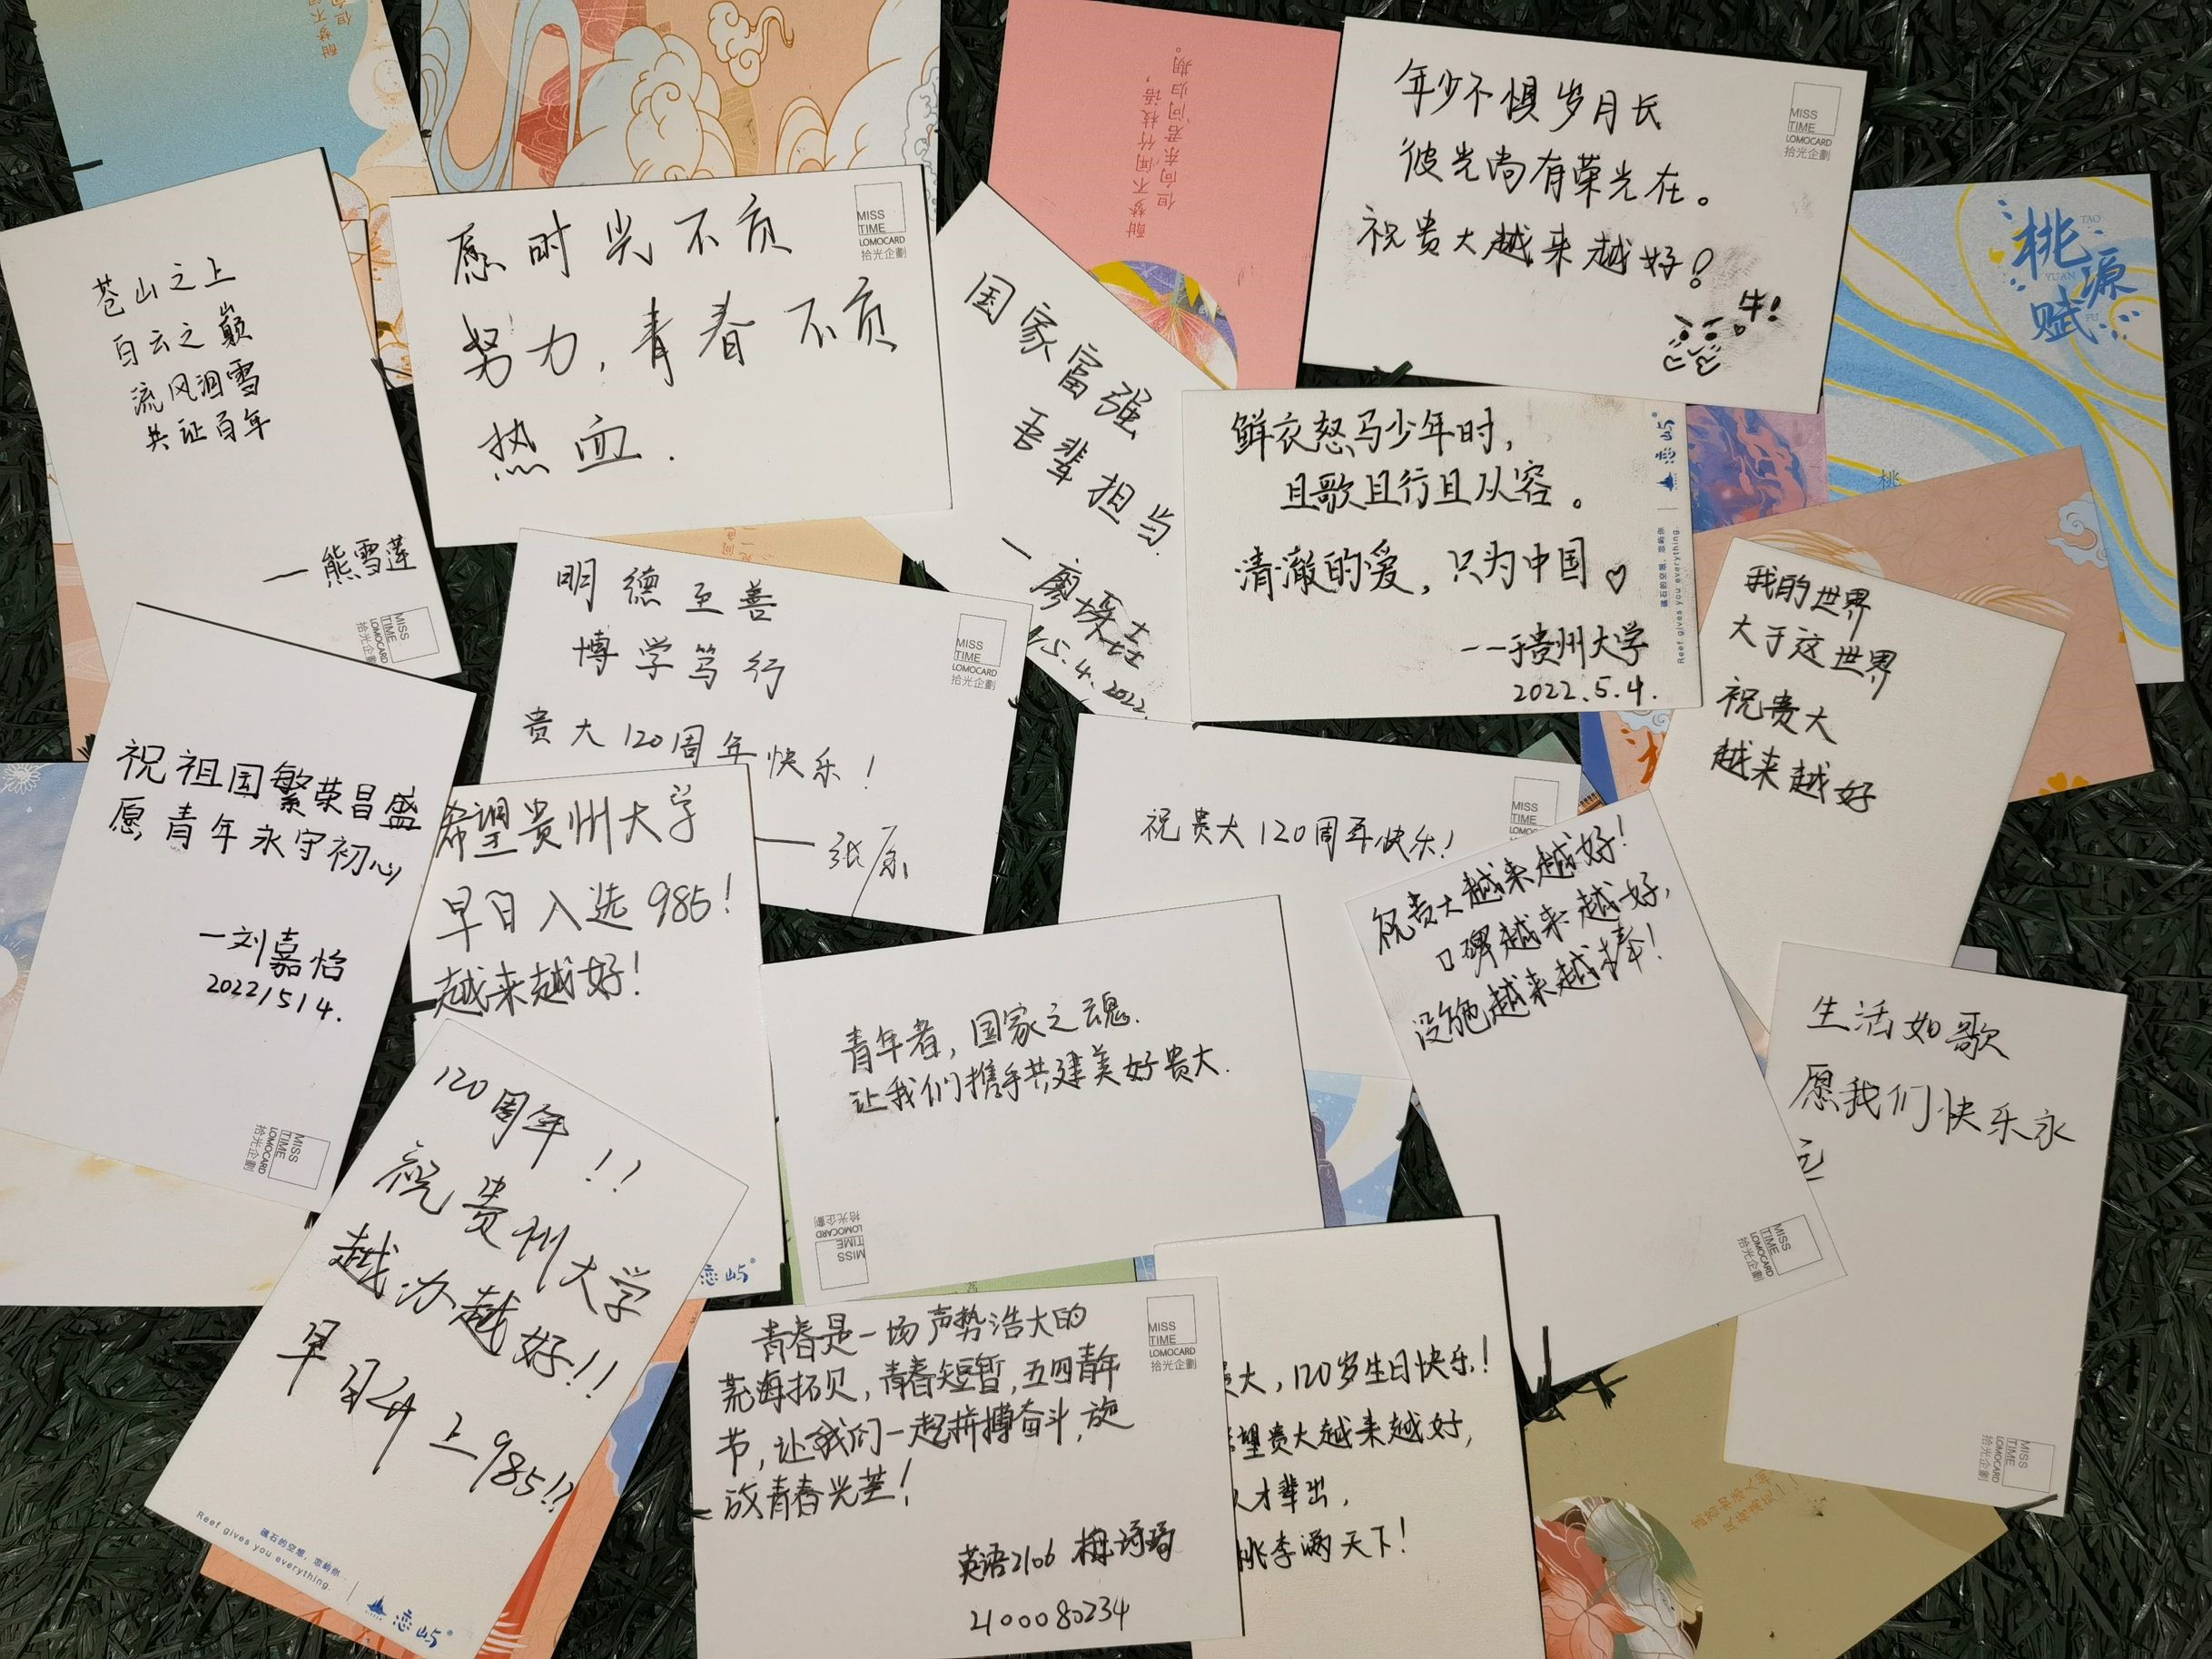 苍山之上
白云之巅
流风洄雪
共证百年
—熊雪莲
MISS
TIME
LOMOCARD
拾光企劃
愿时光不负
努力,青春不负
热血.
MISS
TIME
LOMOCARD
拾光企劃
酣梦不闻竹枝语,
但向东君问归期。
国家富强
吾辈担当.
5.4.2022.
年少不惧岁月长
彼光尚有荣光在。
祝贵大越来越好!
牛!
MISS
TIME
LOMOCARD
拾光企劃
桃源赋
TAO
YUAN
FU
鲜衣怒马少年时,
且歌且行且从容。
清澈的爱,只为中国♡
--于贵州大学
2022.5.4.
恋屿
礁石的空想,恋屿你
Reef gives you everything.
明德至善
博学笃行
贵大120周年快乐!
MISS
TIME
LOMOCARD
拾光企劃
我的世界
大于这世界
祝贵大
越来越好
祝祖国繁荣昌盛
愿青年永守初心
—刘嘉怡
2022/5/4.
MISS
TIME
LOMOCARD
拾光企劃
希望贵州大学
早日入选985!
越来越好!
恋屿
祝贵大120周年快乐!
MISS
TIME
祝贵大越来越好!
口碑越来越好,
设施越来越棒!
MISS
TIME
LOMOCARD
拾光企劃
青年者,国家之魂.
让我们携手共建美好贵大.
MISS
TIME
LOMOCARD
拾光企劃
生活如歌
愿我们快乐永
MISS
TIME
LOMOCARD
拾光企劃
120周年!!
祝贵州大学
越办越好!!
早日升上985!!
礁石的空想,恋屿你
Reef gives you everything.
恋屿
青春是一场声势浩大的
荒海拓贝,青春短暂,五四青年
节,让我们一起拼搏奋斗,绽
放青春光芒!
英语2106 梅诗琦
2100080234
MISS
TIME
LOMOCARD
拾光企劃
大,120岁生日快乐!
望贵大越来越好,
人才辈出,
桃李满天下!